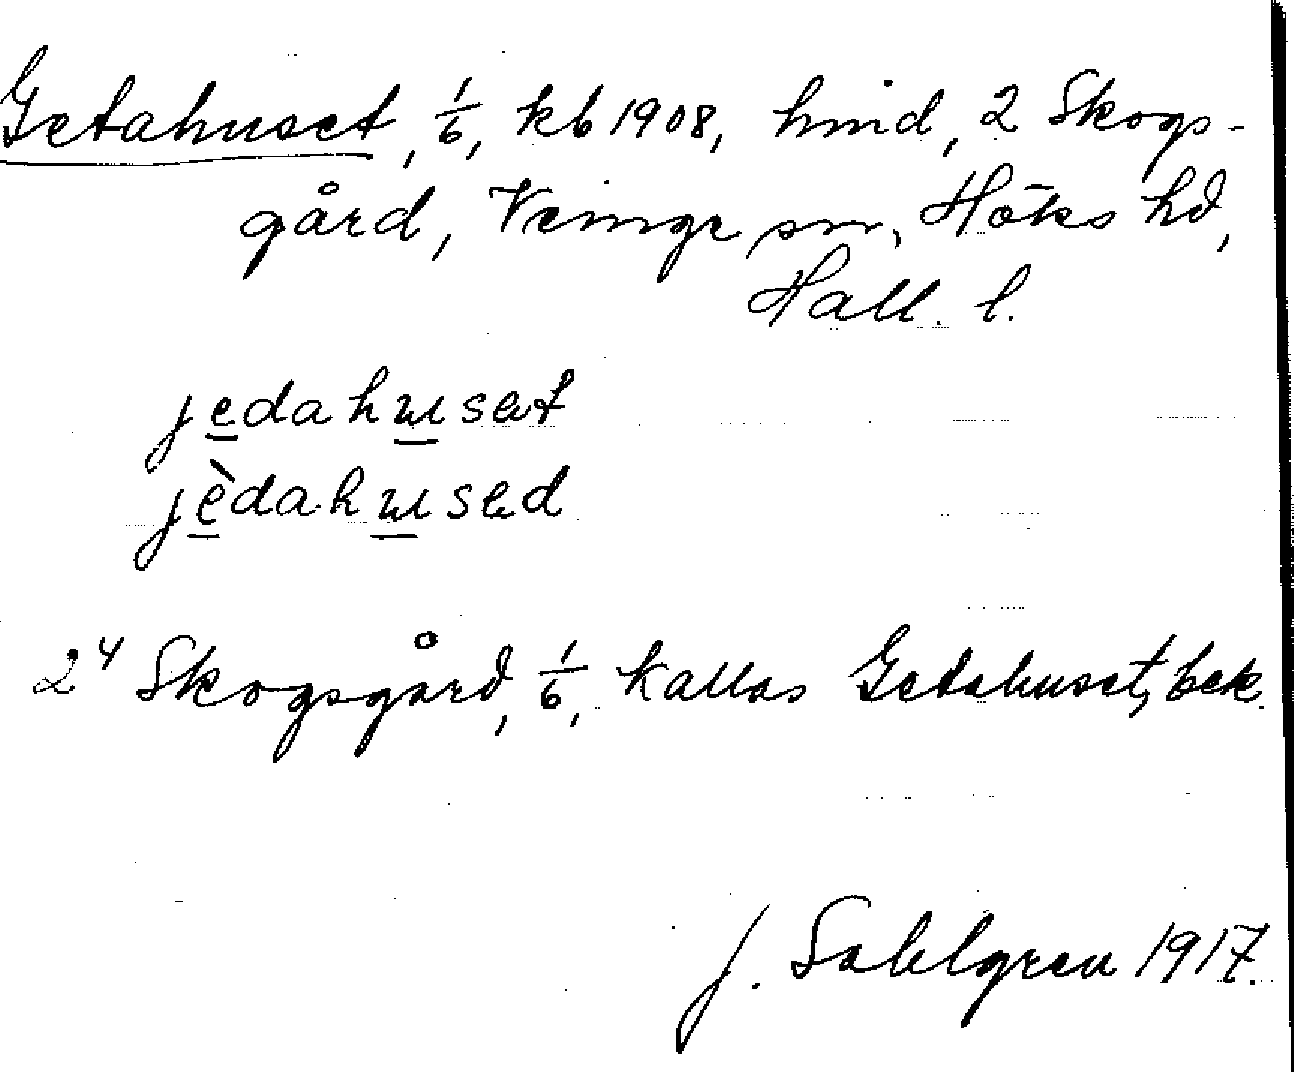 Getahuset, 1/6, kb 1908, hmd, 2 Skogs-
gård, Veinge sn, Höks hd,
Hall. l.
jedahusat
jèdahusəd
2⁴ Skogsgård, 1/6, kallas Getahuset, bek.
J. Sahlgren 1917.